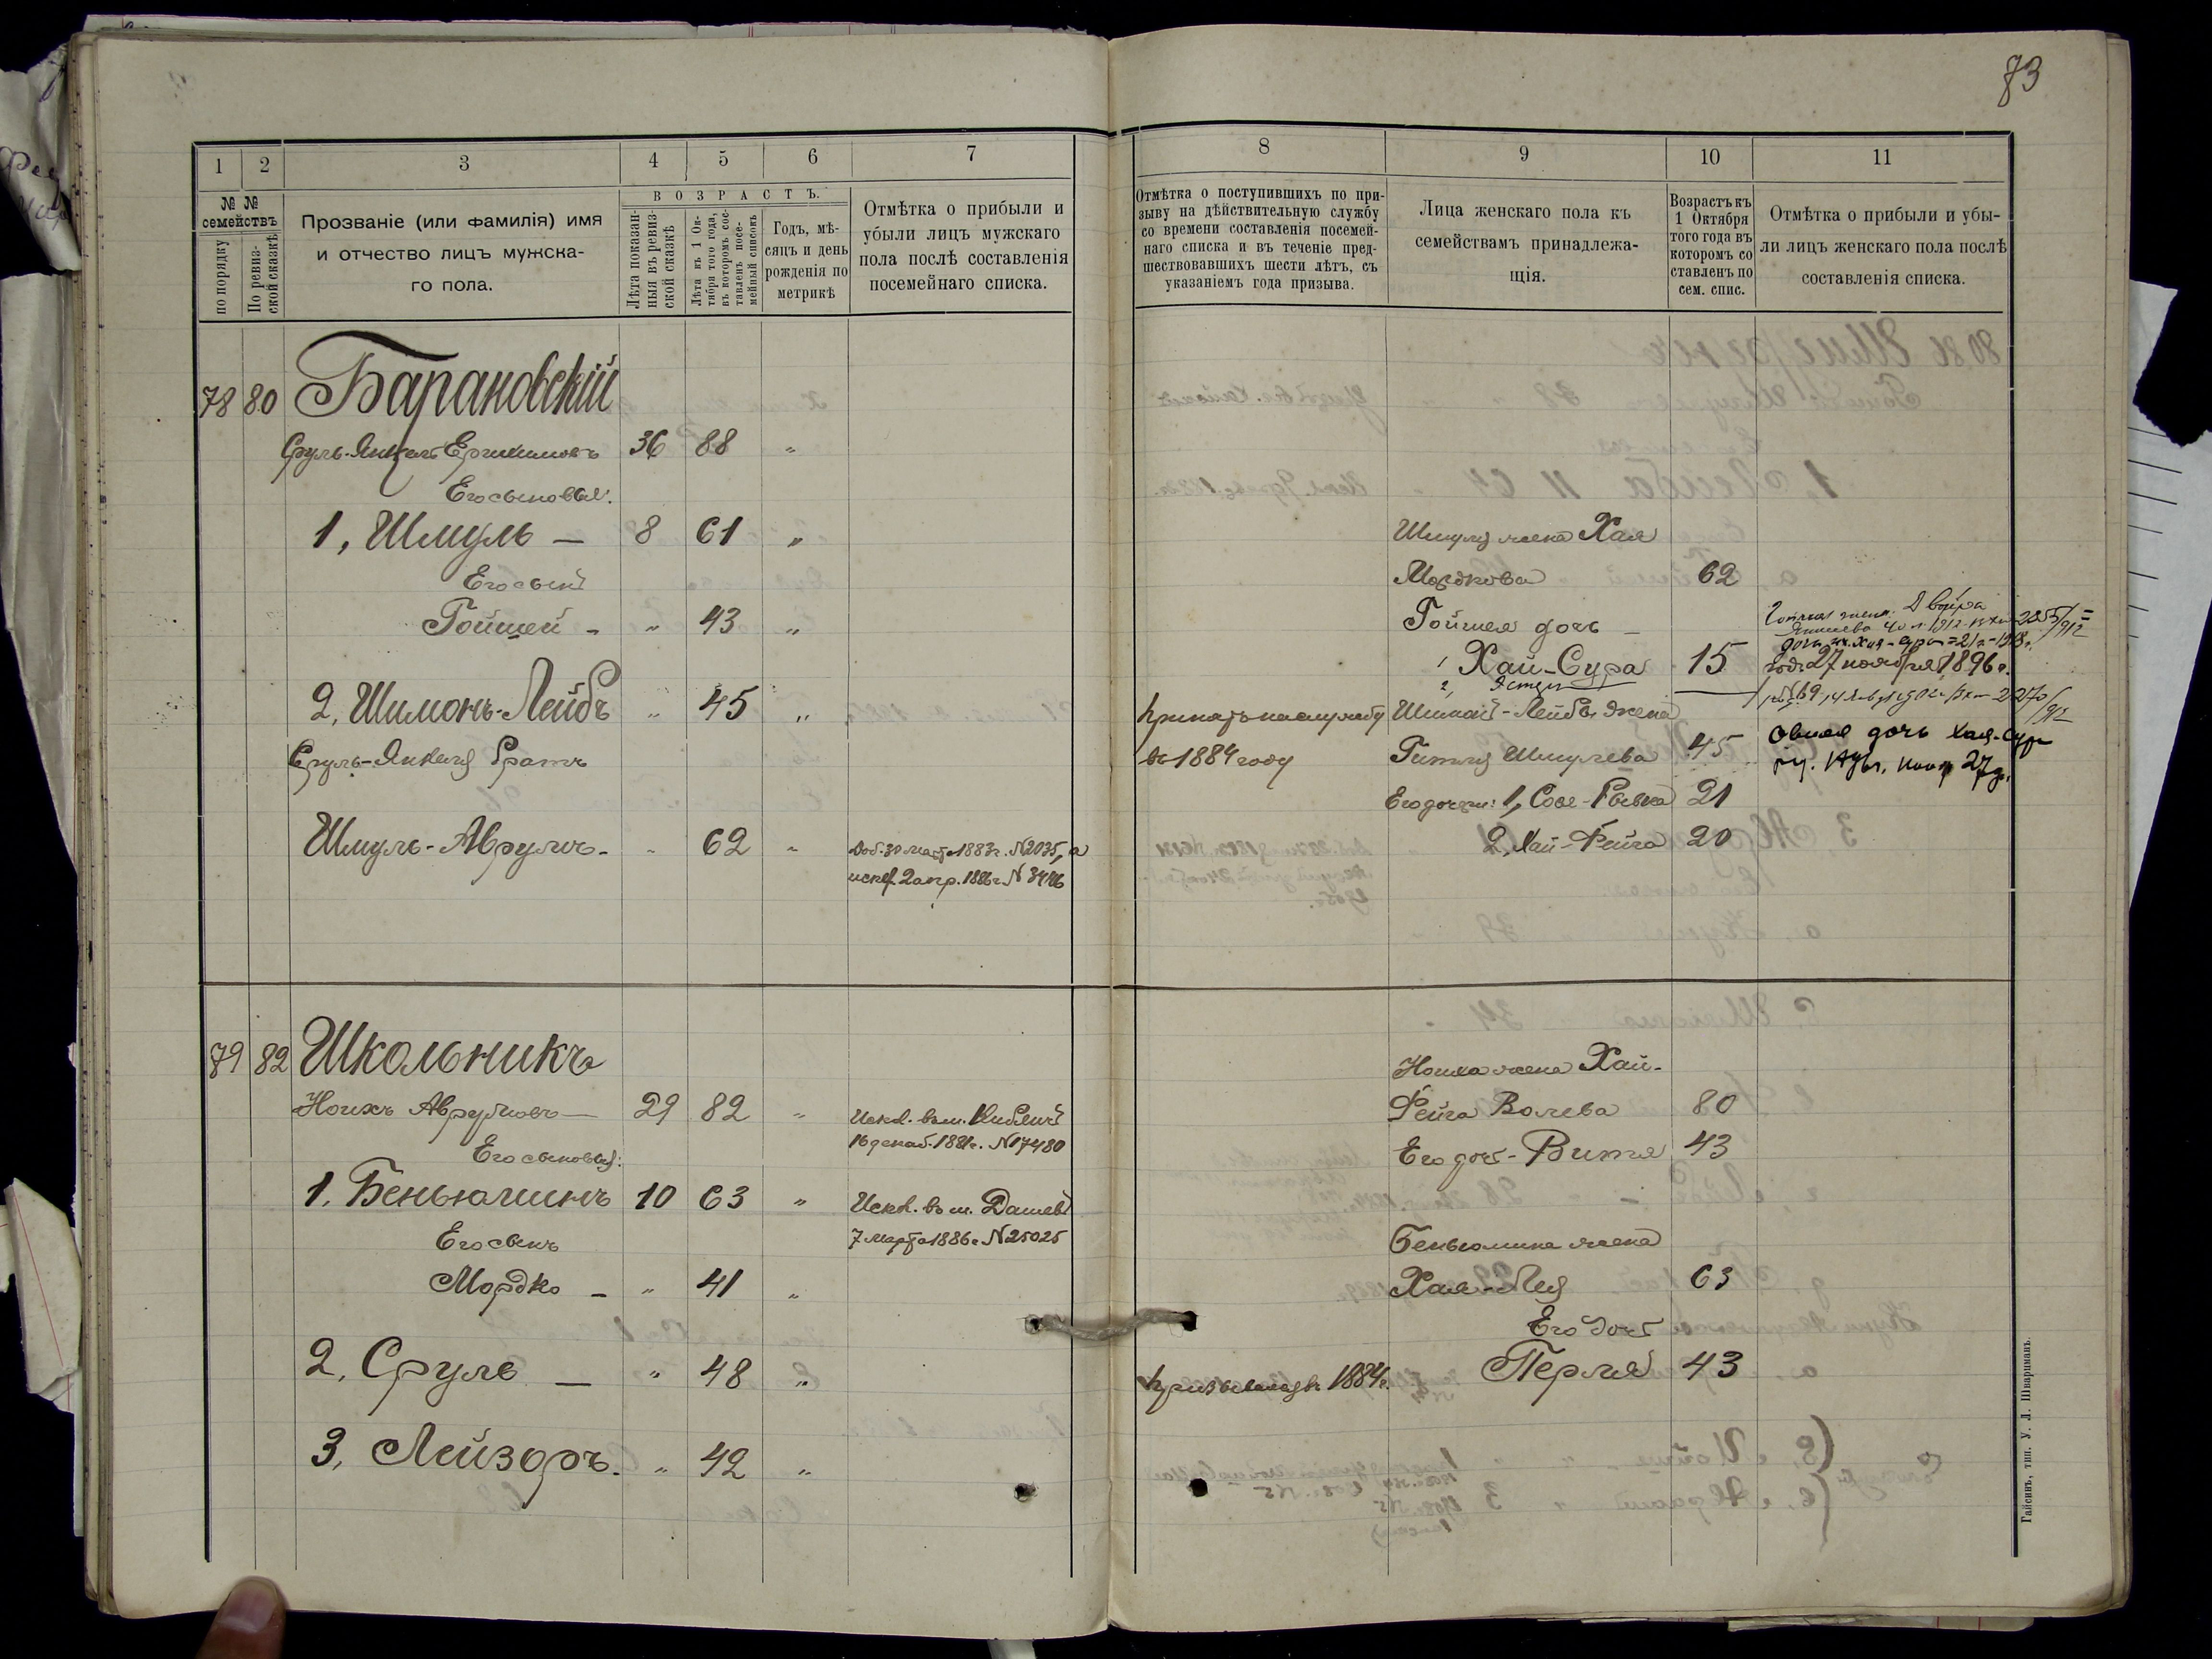 73
1 2 3 4 5 6 7
№ № семействъ
по порядку
По ревиз-
ской сказкѣ
Прозваніе (или фамилія) имя
и отчество лицъ мужска-
го пола.
ВОЗРАСТЪ.
Лѣта показан-
ныя въ ревиз-
ской сказкѣ
Лѣта къ 1 Ок-
тября того года,
въ которомъ сос-
тавленъ посе-
мейный списокъ
Годъ, мѣ-
сяцъ и день
рожденія по
метрикѣ
Отмѣтка о прибыли и
убыли лицъ мужскаго
пола послѣ составленія
посемейнаго списка.
78 80 Барановскій
Сруль-Янкель 36 88 "
Его сыновья:
1, Шмуль — 8 61 "
Его сынъ
Гойшей - " 43 "
2, Шимонъ-Лейбъ " 45 "
Сруль-Янкеля братъ
Шмуль-Аврумъ - " 62 " Доб. 30 марта 1883 г. № 2035, а
искл. 2 апр. 1886 г. № 3446
79 82 Школьникъ
Ноихъ Аврумовъ — 29 82 " Искл. въ м. Кубличъ
16 декаб. 1881 г. № 17480
Его сыновья:
1, Беньюминъ 10 63 " Искл. въ м. Дашевъ
7 марта 1886 г. № 25025
Его сынъ
Мордко - " 41 "
2, Сруль — " 48 "
3, Лейзоръ. " 42 "
8 9 10 11
Отмѣтка о поступившихъ по при-
зыву на дѣйствительную службу
со времени составленія посемей-
наго списка и въ теченіе пред-
шествовавшихъ шести лѣтъ, съ
указаніемъ года призыва.
Лица женскаго пола къ
семействамъ принадлежа-
щія.
Возрастъ къ
1 Октября
того года въ
которомъ со
ставленъ по
сем. спис.
Отмѣтка о прибыли и убы-
ли лицъ женскаго пола послѣ
составленія списка.
Шмуля жена Хая
Мордкова 62
Гойшея дочь —
1, Хай-Сура 15
2, Эстер
жена Двойра
род. 27 ноября 1896 г.
Принятъ на службу
въ 1884 году
Шимон-Лейбы жена
Гитля Шмулева 45
Его дочери: 1, Сося-Рывка 21
2, Хай-Фейга 20
дочь Хая-Сур
Ноиха жена Хай-
Фейга Волева 80
Его доч-Витя 43
Беньюмина жена
Хая-Лея 63
Его доч
Перля 43
Призывался 1884 г.
Гайсинъ, тип. У. Л. Шварцманъ.